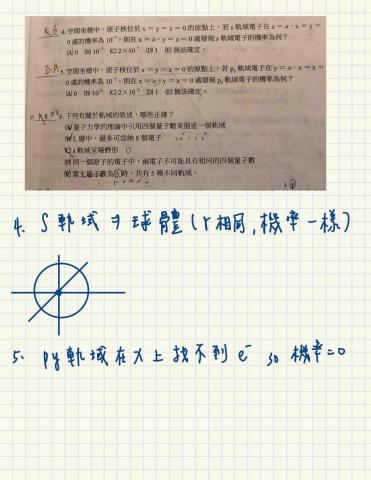 4. 空間坐標中，原子核位於 x = y = z = 0 的原點上，若 s 軌域電子在 z = a，x = y =
0 處的機率為 10⁻³，則在 x = a，y = z = 0 處發現 s 軌域電子的機率為何？
(A) 0 (B) 10⁻³ (D) 1 (E) 無法確定。
5. 空間坐標中，原子核位於 x = y = z = 0 的原點上，若 py 軌域電子在 y = a，x = z =
0 處的機率為 10⁻³，則在 x = a，y = z = 0 處發現 py 軌域電子的機率為何？
(A) 0 (D) 1 (E) 無法確定。
6. 下列有關於軌域的敘述，哪些正確？
(A) 量子力學的理論中引用四個量子數來描述一個軌域
(B) L 層中，最多可容納 8 個電子
(C) s 軌域呈啞鈴形
(D) 同一個原子的電子中，兩電子不可能具有相同的四個量子數
(E) 當主量子數為 5 時，共有 5 種不同軌域。
4. S 軌域 球體 (r 相同，機率一樣)
5. py 軌域在 x 上找不到 e⁻ so 機率=0